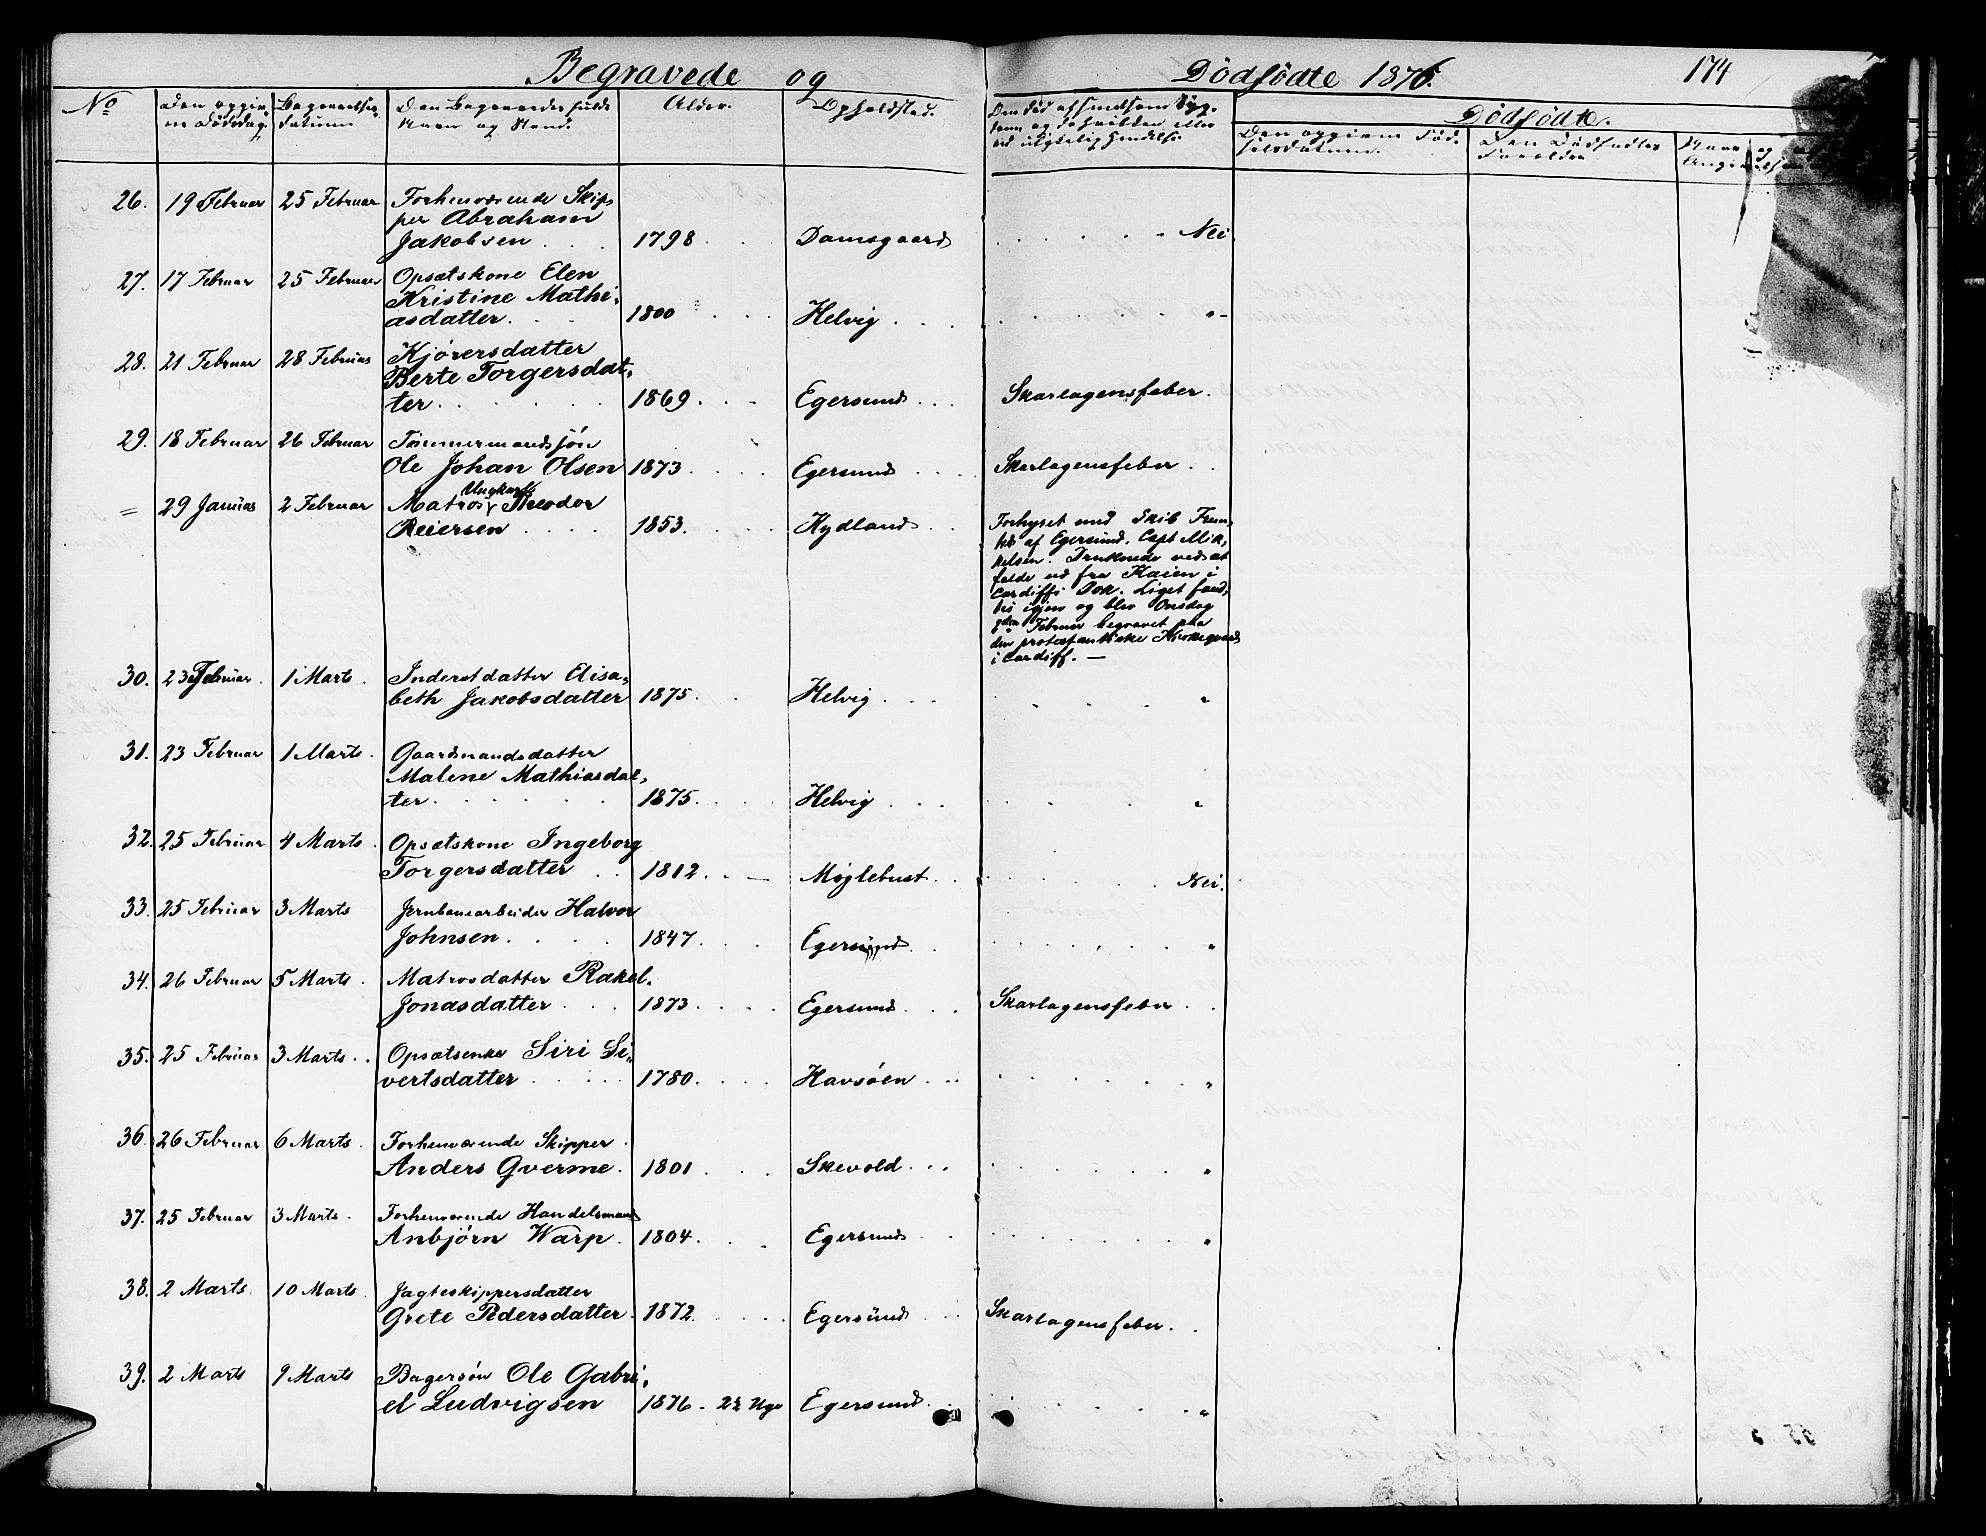 Begravede og Dödfödte 1876. 174
No
Den opgiv-
ne Dödsdag.
Begravelses-
datum
Den Begravedes fulde
Navn og Stand.
Alder.
Opholdsted.
Dödfödte.
Den opgivne Föd-
selsdatum.
Den Dödfödtes
Forældre
Navn og
26. 19 Februar 25 Februar Forhenværende Skip-
per Abraham
Jakobsen 1798 Damsgaard Nei
27. 17 Februar 25 Februar Opsætskone Elen
Kristine Mathi-
asdatter. 1800 Helvig "
28. 21 Februar 28 Februar Kjörersdatter
Berte Torgersdat-
ter. 1869 Egersund Skarlagensfeber.
29. 18 Februar 26 Februar Tømmermandssön
Ole Johan Olsen 1873 Egersund Skarlagensfeber
= 29 Januar 2 Februar Matros Ungkarl Theodor
Reiersen 1853 Hydland
Forhyret med Skib
af Egersund. Capt Mik-
kelsen. Druknede ved at
falde ud fra Kaien i
Cardiffs Dok. Liget fand-
tes igjen og blev Onsdag
9den Februar begravet paa
den protestantiske Kirkegaard
i Cardiff. —
30. 23 Februar 1 Marts Inderstdatter Elisa-
beth Jakobsdatter 1875 Helvig "
31. 23 Februar 1 Marts Gaardmandsdatter
Malene Mathiasdat-
ter 1875 Helvig "
32. 25 Februar 4 Marts Opsætskone Ingeborg
Torgersdatter 1812 Møglebust Nei.
33. 25 Februar 3 Marts Jernbanearbeider Halvor
Johnsen 1847 Egersund "
34. 26 Februar 5 Marts Matrosdatter Rakel
Jonasdatter 1873 Egersund Skarlagensfeber
35. 25 Februar 3 Marts Opsætsenke Siri Si-
vertsdatter 1780 Havsöen "
36. 26 Februar 6 Marts Forhenværende Skipper
Anders Qverme 1801 Skevold "
37. 25 Februar 3 Marts Forhenværende Handelsmand
Anbjørn Warp. 1804 Egersund "
38. 2 Marts 10 Marts Jagteskippersdatter
Grete Pedersdatter 1872 Egersund Skarlagensfeber.
39. 2 Marts 9 Marts Bagersön Ole Gabri-
el Ludvigsen 1876 Egersund "